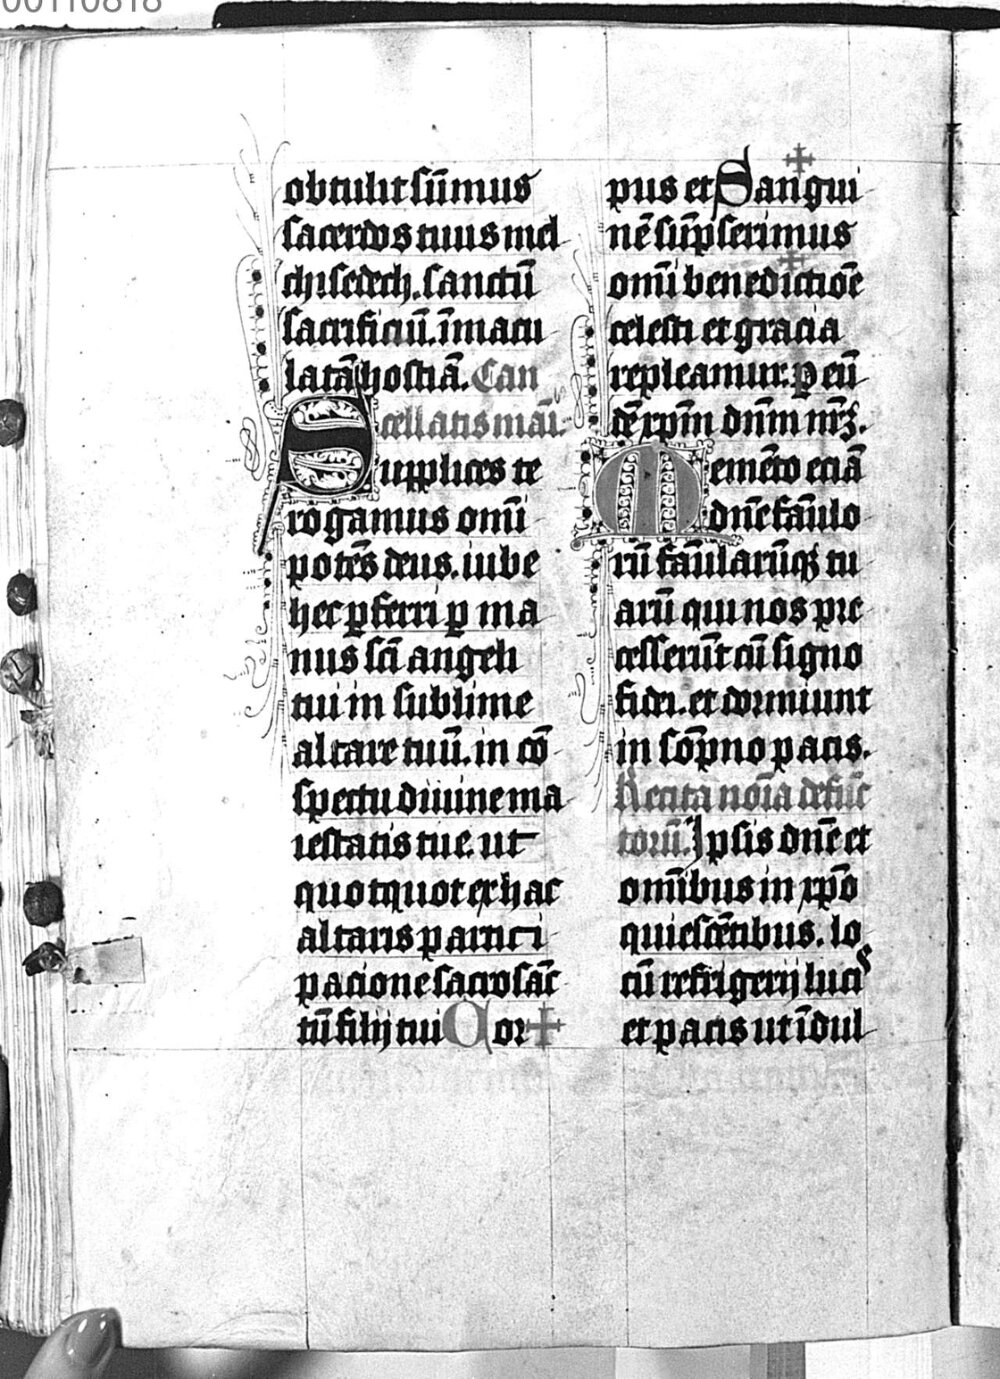 00110818
obtulit sūmus
sacerdos tuus mel
chisedech. sanctū
sacrificiū. īmacu
latā hostiā. Can
cellatis maī.
Supplices te
rogamus omī
potēs deus. iube
hec ꝑferri ꝑ ma
nus scī angeli
tui in sublime
altare tuū. in cō
spectu diuine ma
iestatis tue. ut
quotquot ex hac
altaris partici
pacione sacrosāc
tū filij tui Cor ✠
pus et San✠gui
nē sūpserimus
omī bene✠dictiōe
celesti et gracia
repleamur. ꝑ eū
dē xp̄m dn̄m nr̄ꝫ.
Memēto eciā
dn̄e fāulo
rū fāularūqꝫ tu
arū qui nos pre
cesserūt cū signo
fidei. et dormiunt
in sōpno pacis.
Recita noīa defūc
torū. Ipsis dn̄e et
omībus in xp̄o
quiescētibus. lo
cū refrigerij lucꝭ
et pacis ut īdul